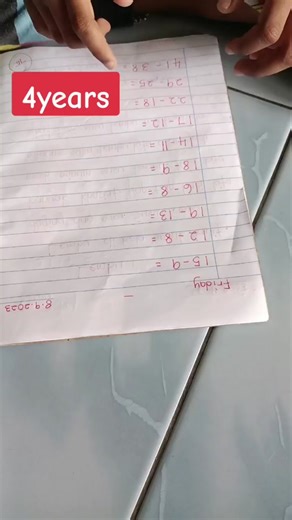 4years
8.9.2023
Friday
15-9 =
12-8 =
19-13 =
16-8 =
18-9 =
14-11 =
17-12 =
22-18 =
29-25 =
41-38 =